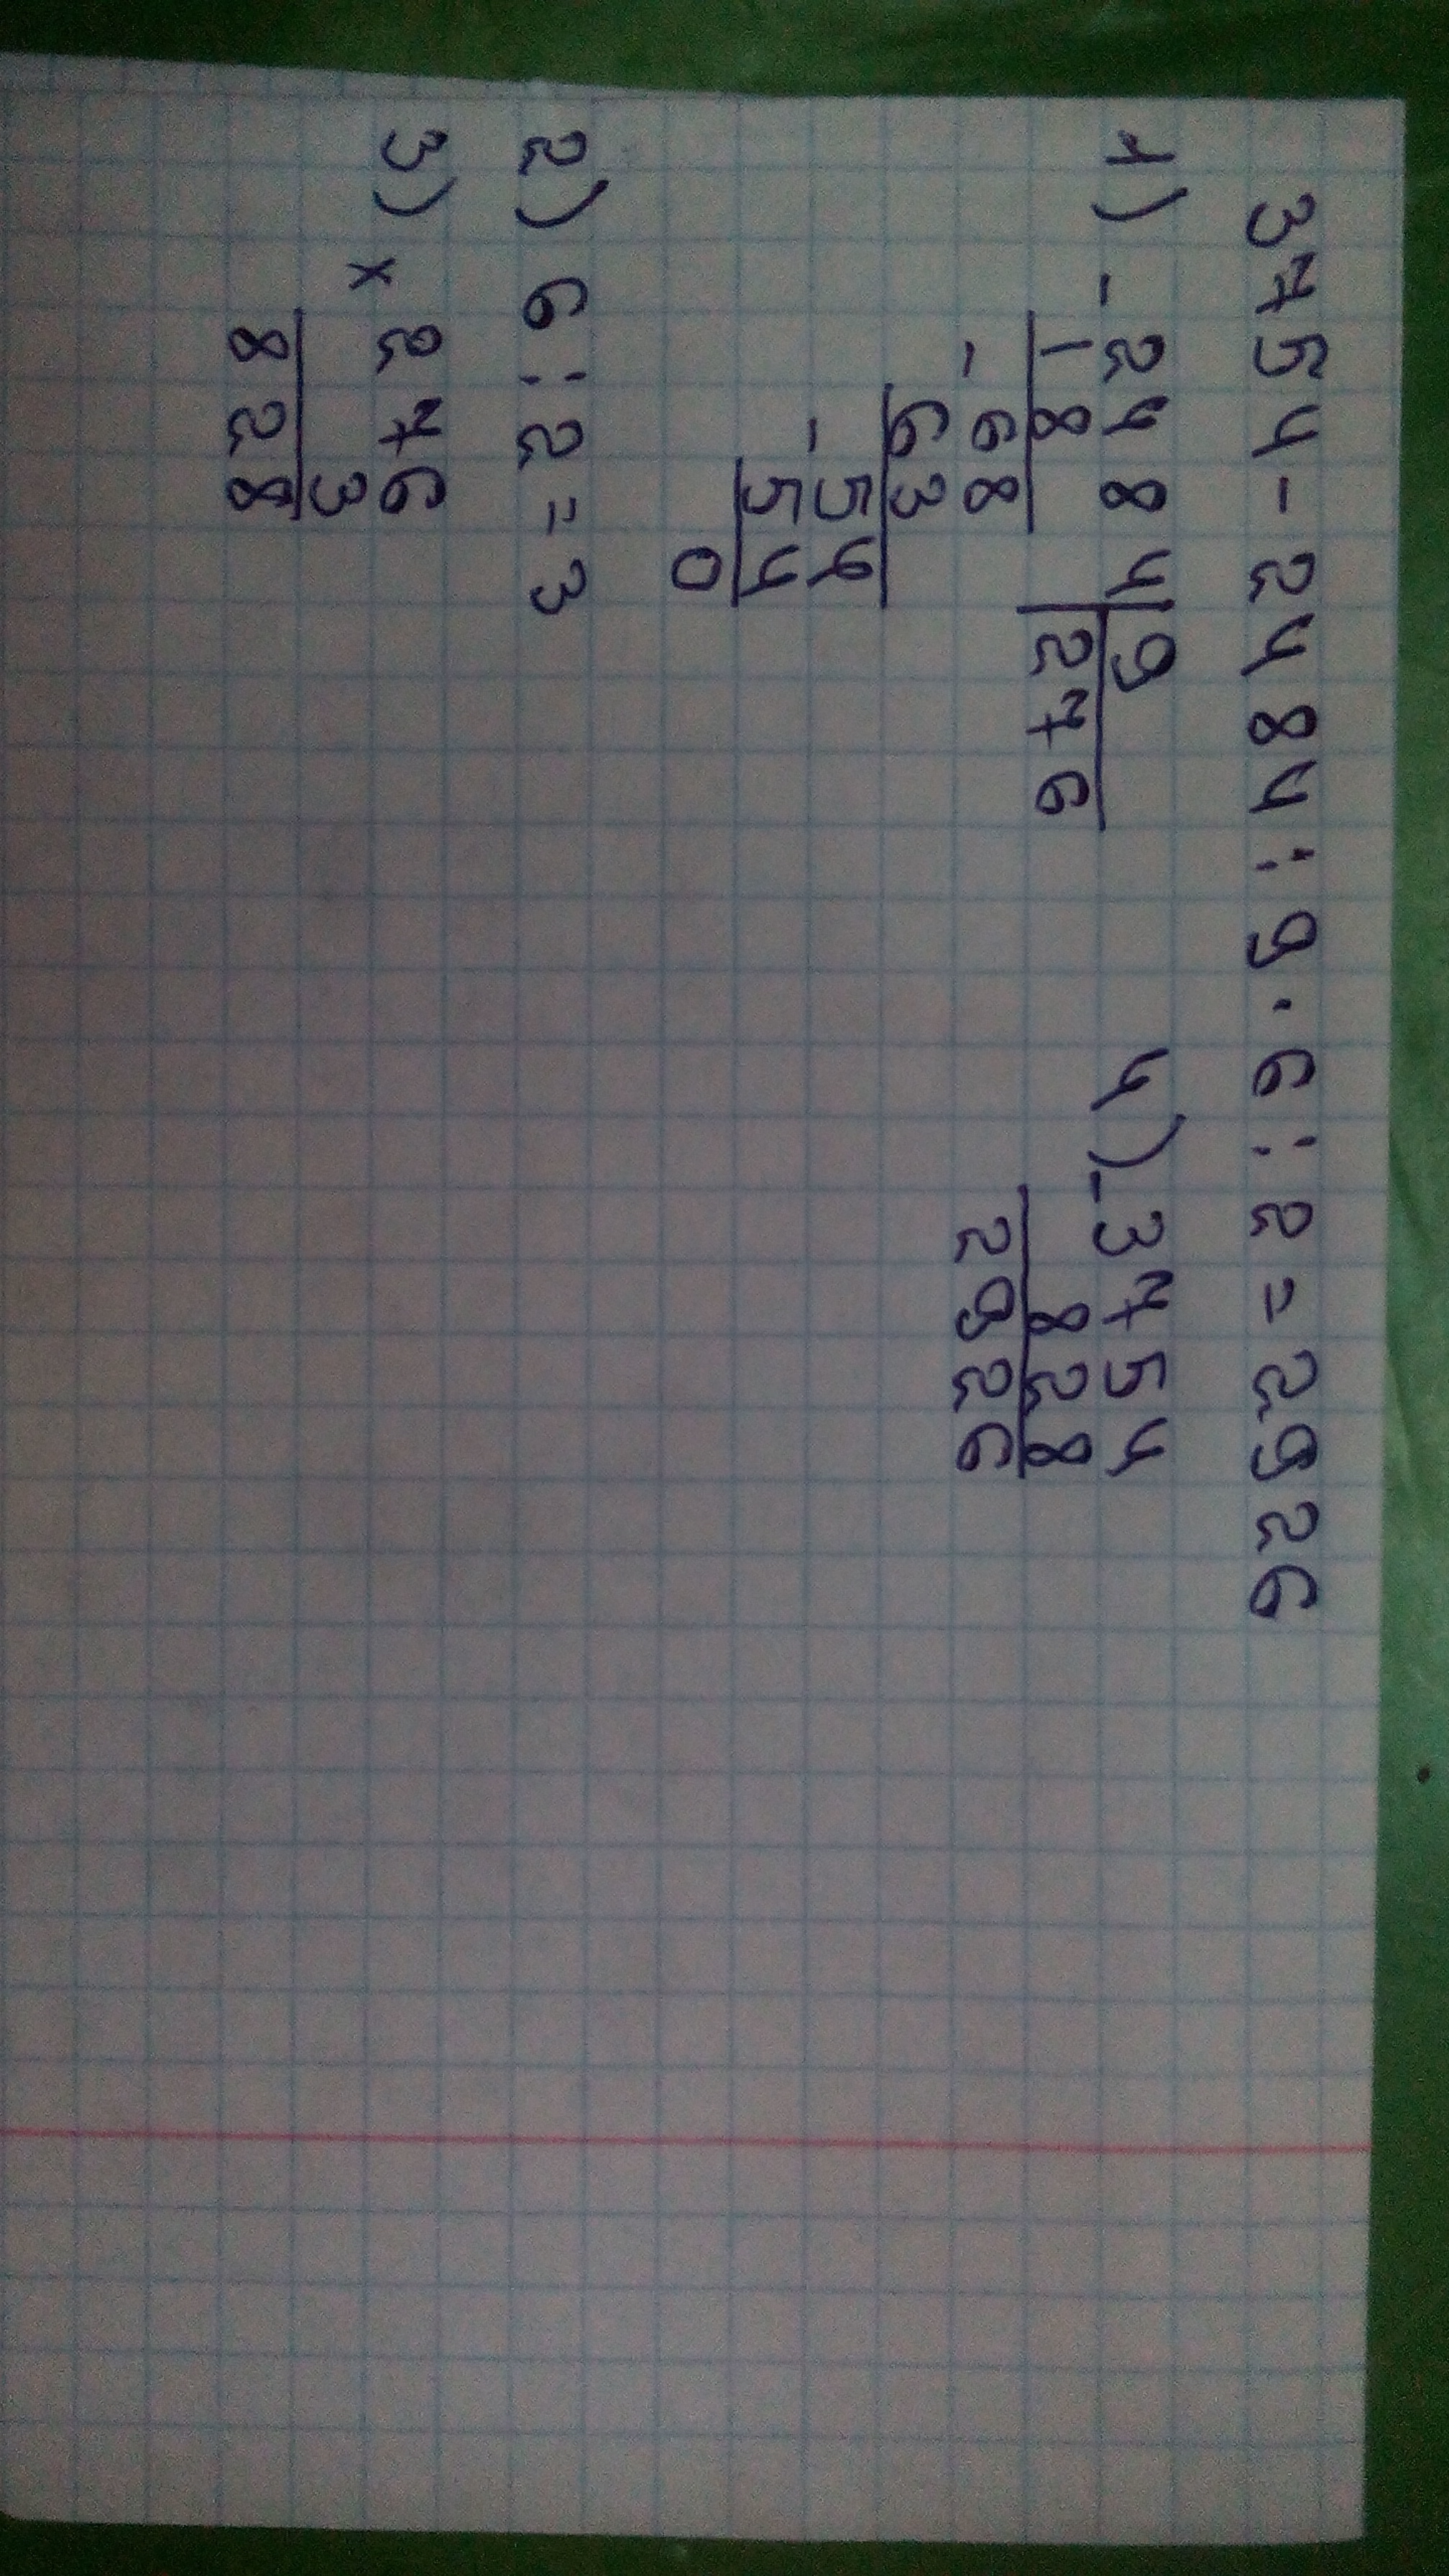 3754-2484:9·6:2=2926
1) -2484|9
18 |276
-68
63
-54
54
0
2) 6:2=3
3) ×276
3
828
4) -3754
828
2926